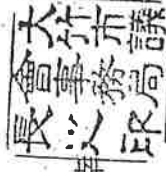 大竹市議
會事務局
長之印